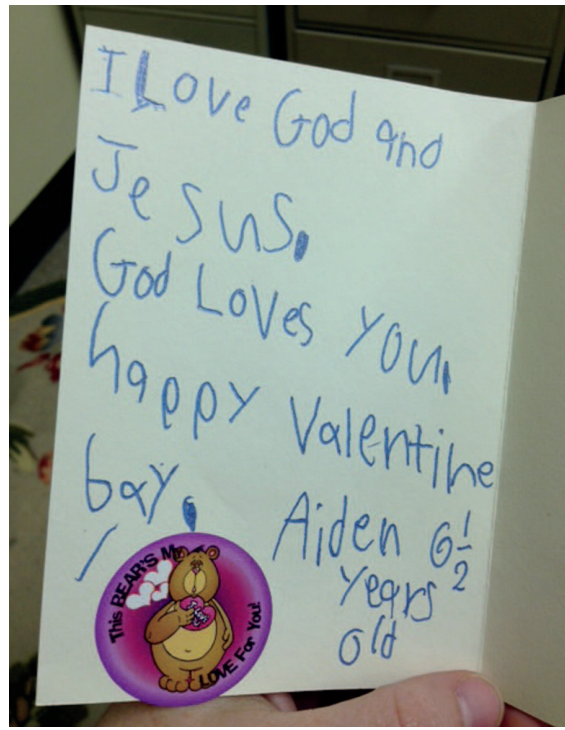 I Love God and
Jesus.
God Loves you.
happy Valentine
bay.
Aiden 6 1/2
years
old
This BEAR'S My
LOVE For You!